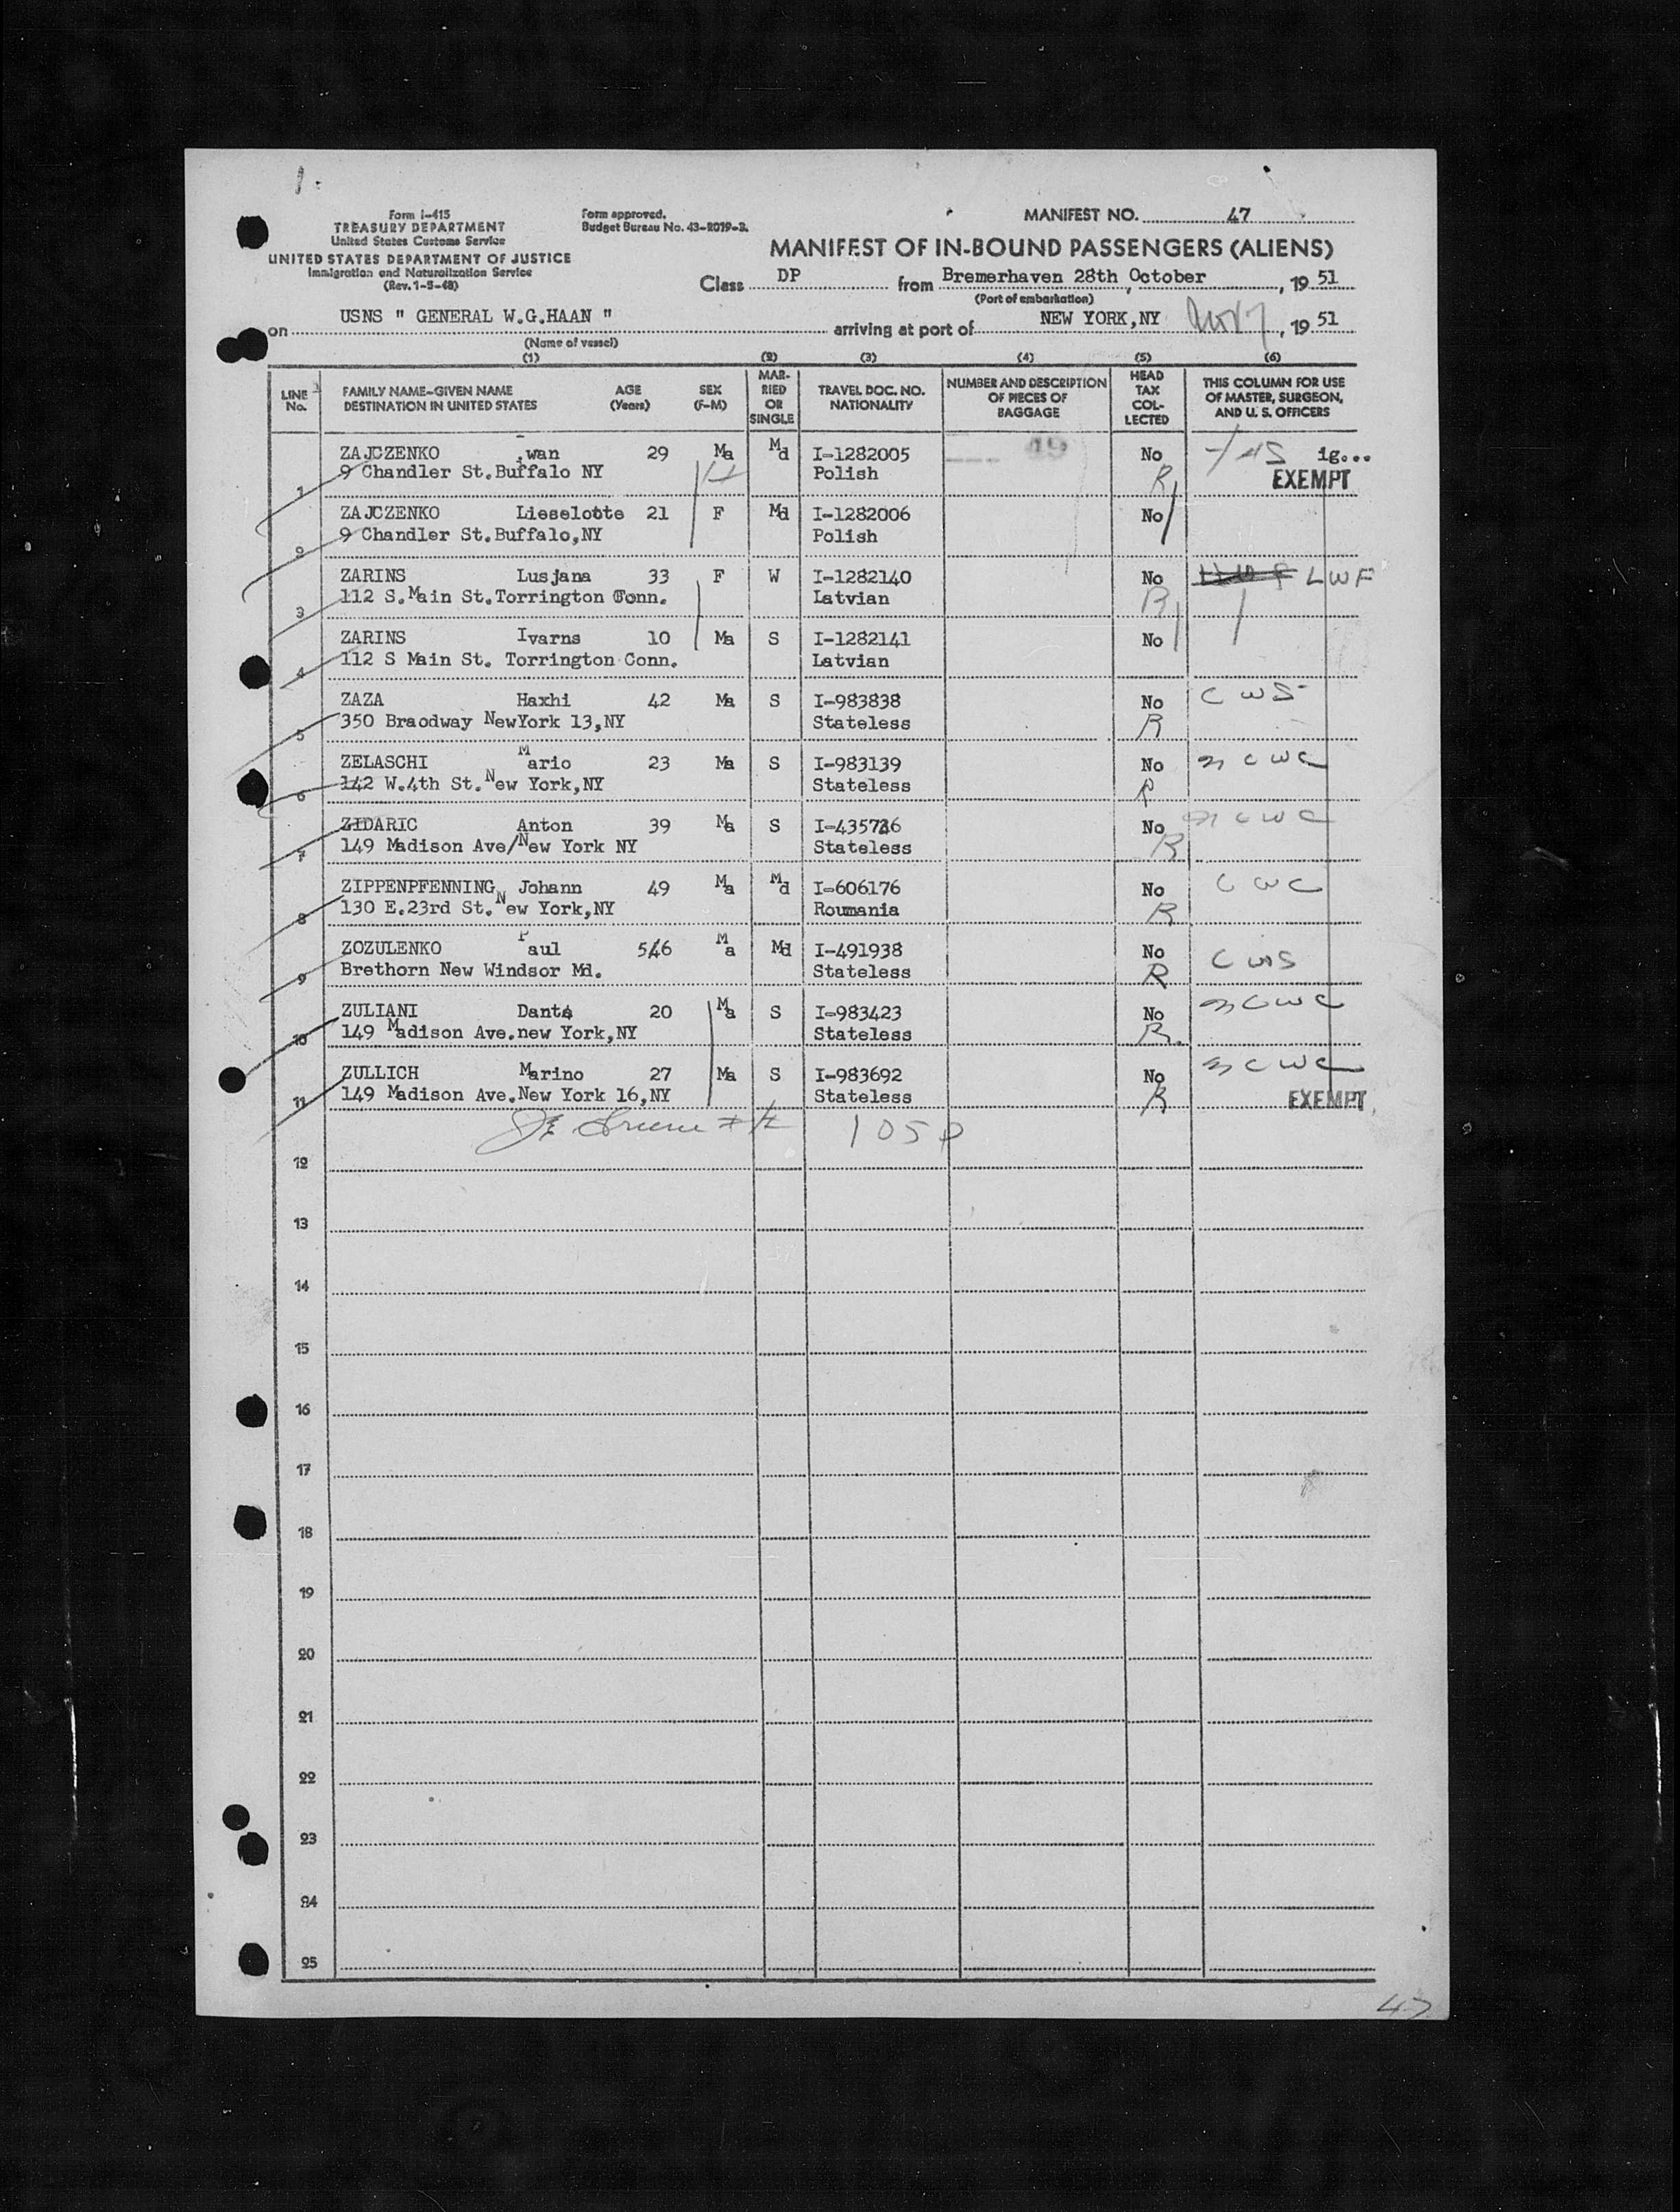 1.
Form I-415
TREASURY DEPARTMENT
United States Customs Service
UNITED STATES DEPARTMENT OF JUSTICE
Immigration and Naturalization Service
(Rev. 1-5-48)
Form approved.
Budget Bureau No. 43-R019-3.
MANIFEST NO. 47
MANIFEST OF IN-BOUND PASSENGERS (ALIENS)
Class DP from Bremerhaven 28th, October, 19 51
(Port of embarkation)
on USNS " GENERAL W.G.HAAN " arriving at port of NEW YORK,NY Nov 7, 19 51
(Name of vessel)
(1) (2) (3) (4) (5) (6)
LINE No. FAMILY NAME-GIVEN NAME DESTINATION IN UNITED STATES AGE (Years) SEX (F-M) MARRIED OR SINGLE TRAVEL DOC. NO. NATIONALITY NUMBER AND DESCRIPTION OF PIECES OF BAGGAGE HEAD TAX COLLECTED THIS COLUMN FOR USE OF MASTER, SURGEON, AND U. S. OFFICERS
ZAJCZENKO ,wan 29 Ma Md I-1282005 No ig...
1 9 Chandler St.Buffalo NY Polish R EXEMPT
ZAJCZENKO Lieselotte 21 F Md I-1282006 No
2 9 Chandler St.Buffalo,NY Polish
ZARINS Lusjana 33 F W I-1282140 No LWF
3 112 S.Main St.Torrington Conn. Latvian R
ZARINS Ivarns 10 Ma S I-1282141 No
4 112 S Main St. Torrington Conn. Latvian
ZAZA Haxhi 42 Ma S I-983838 No CWS
5 350 Braodway NewYork 13,NY Stateless R
ZELASCHI Mario 23 Ma S I-983139 No NCWC
6 142 W.4th St.New York,NY Stateless R
ZIDARIC Anton 39 Ma S No NCWC
7 149 Madison Ave/New York NY Stateless R
ZIPPENPFENNING Johann 49 Ma Md I-606176 No CWC
8 130 E.23rd St.New York,NY Roumania R
ZOZULENKO Paul 546 Ma Md I-491938 No CWS
9 Brethorn New Windsor Md. Stateless R
ZULIANI Dante 20 Ma S I-983423 No NCWC
10 149 Madison Ave.new York,NY Stateless R.
ZULLICH Marino 27 Ma S I-983692 No NCWC
11 149 Madison Ave.New York 16,NY Stateless R EXEMPT
105
12
13
14
15
16
17
18
19
20
21
22
23
24
25
47